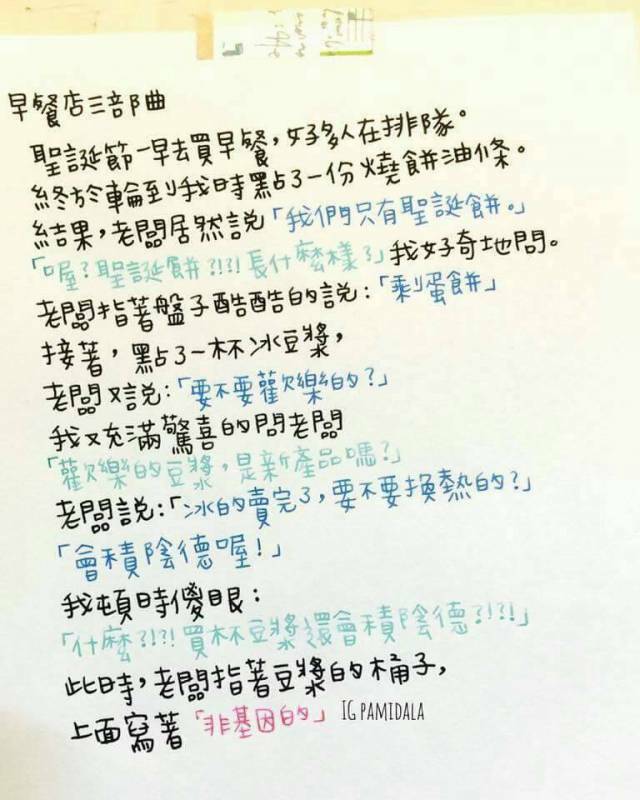 早餐店三部曲
聖誕節一早去買早餐，好多人在排隊。
終於輪到我時點了一份燒餅油條。
結果，老闆居然說「我們只有聖誕餅。」
「喔？聖誕餅?!?!長什麼樣？」我好奇地問。
老闆指著盤子酷酷的說：「剩蛋餅」
接著，點了一杯冰豆漿，
老闆又說：「要不要歡樂的？」
我又充滿驚喜的問老闆
「歡樂的豆漿，是新產品嗎？」
老闆說：「冰的賣完了，要不要換熱的？」
「會積陰德喔！」
我頓時傻眼：
「什麼?!?!買杯豆漿還會積陰德?!?!」
此時，老闆指著豆漿的桶子，
上面寫著「非基因的」 IG PAMIDALA